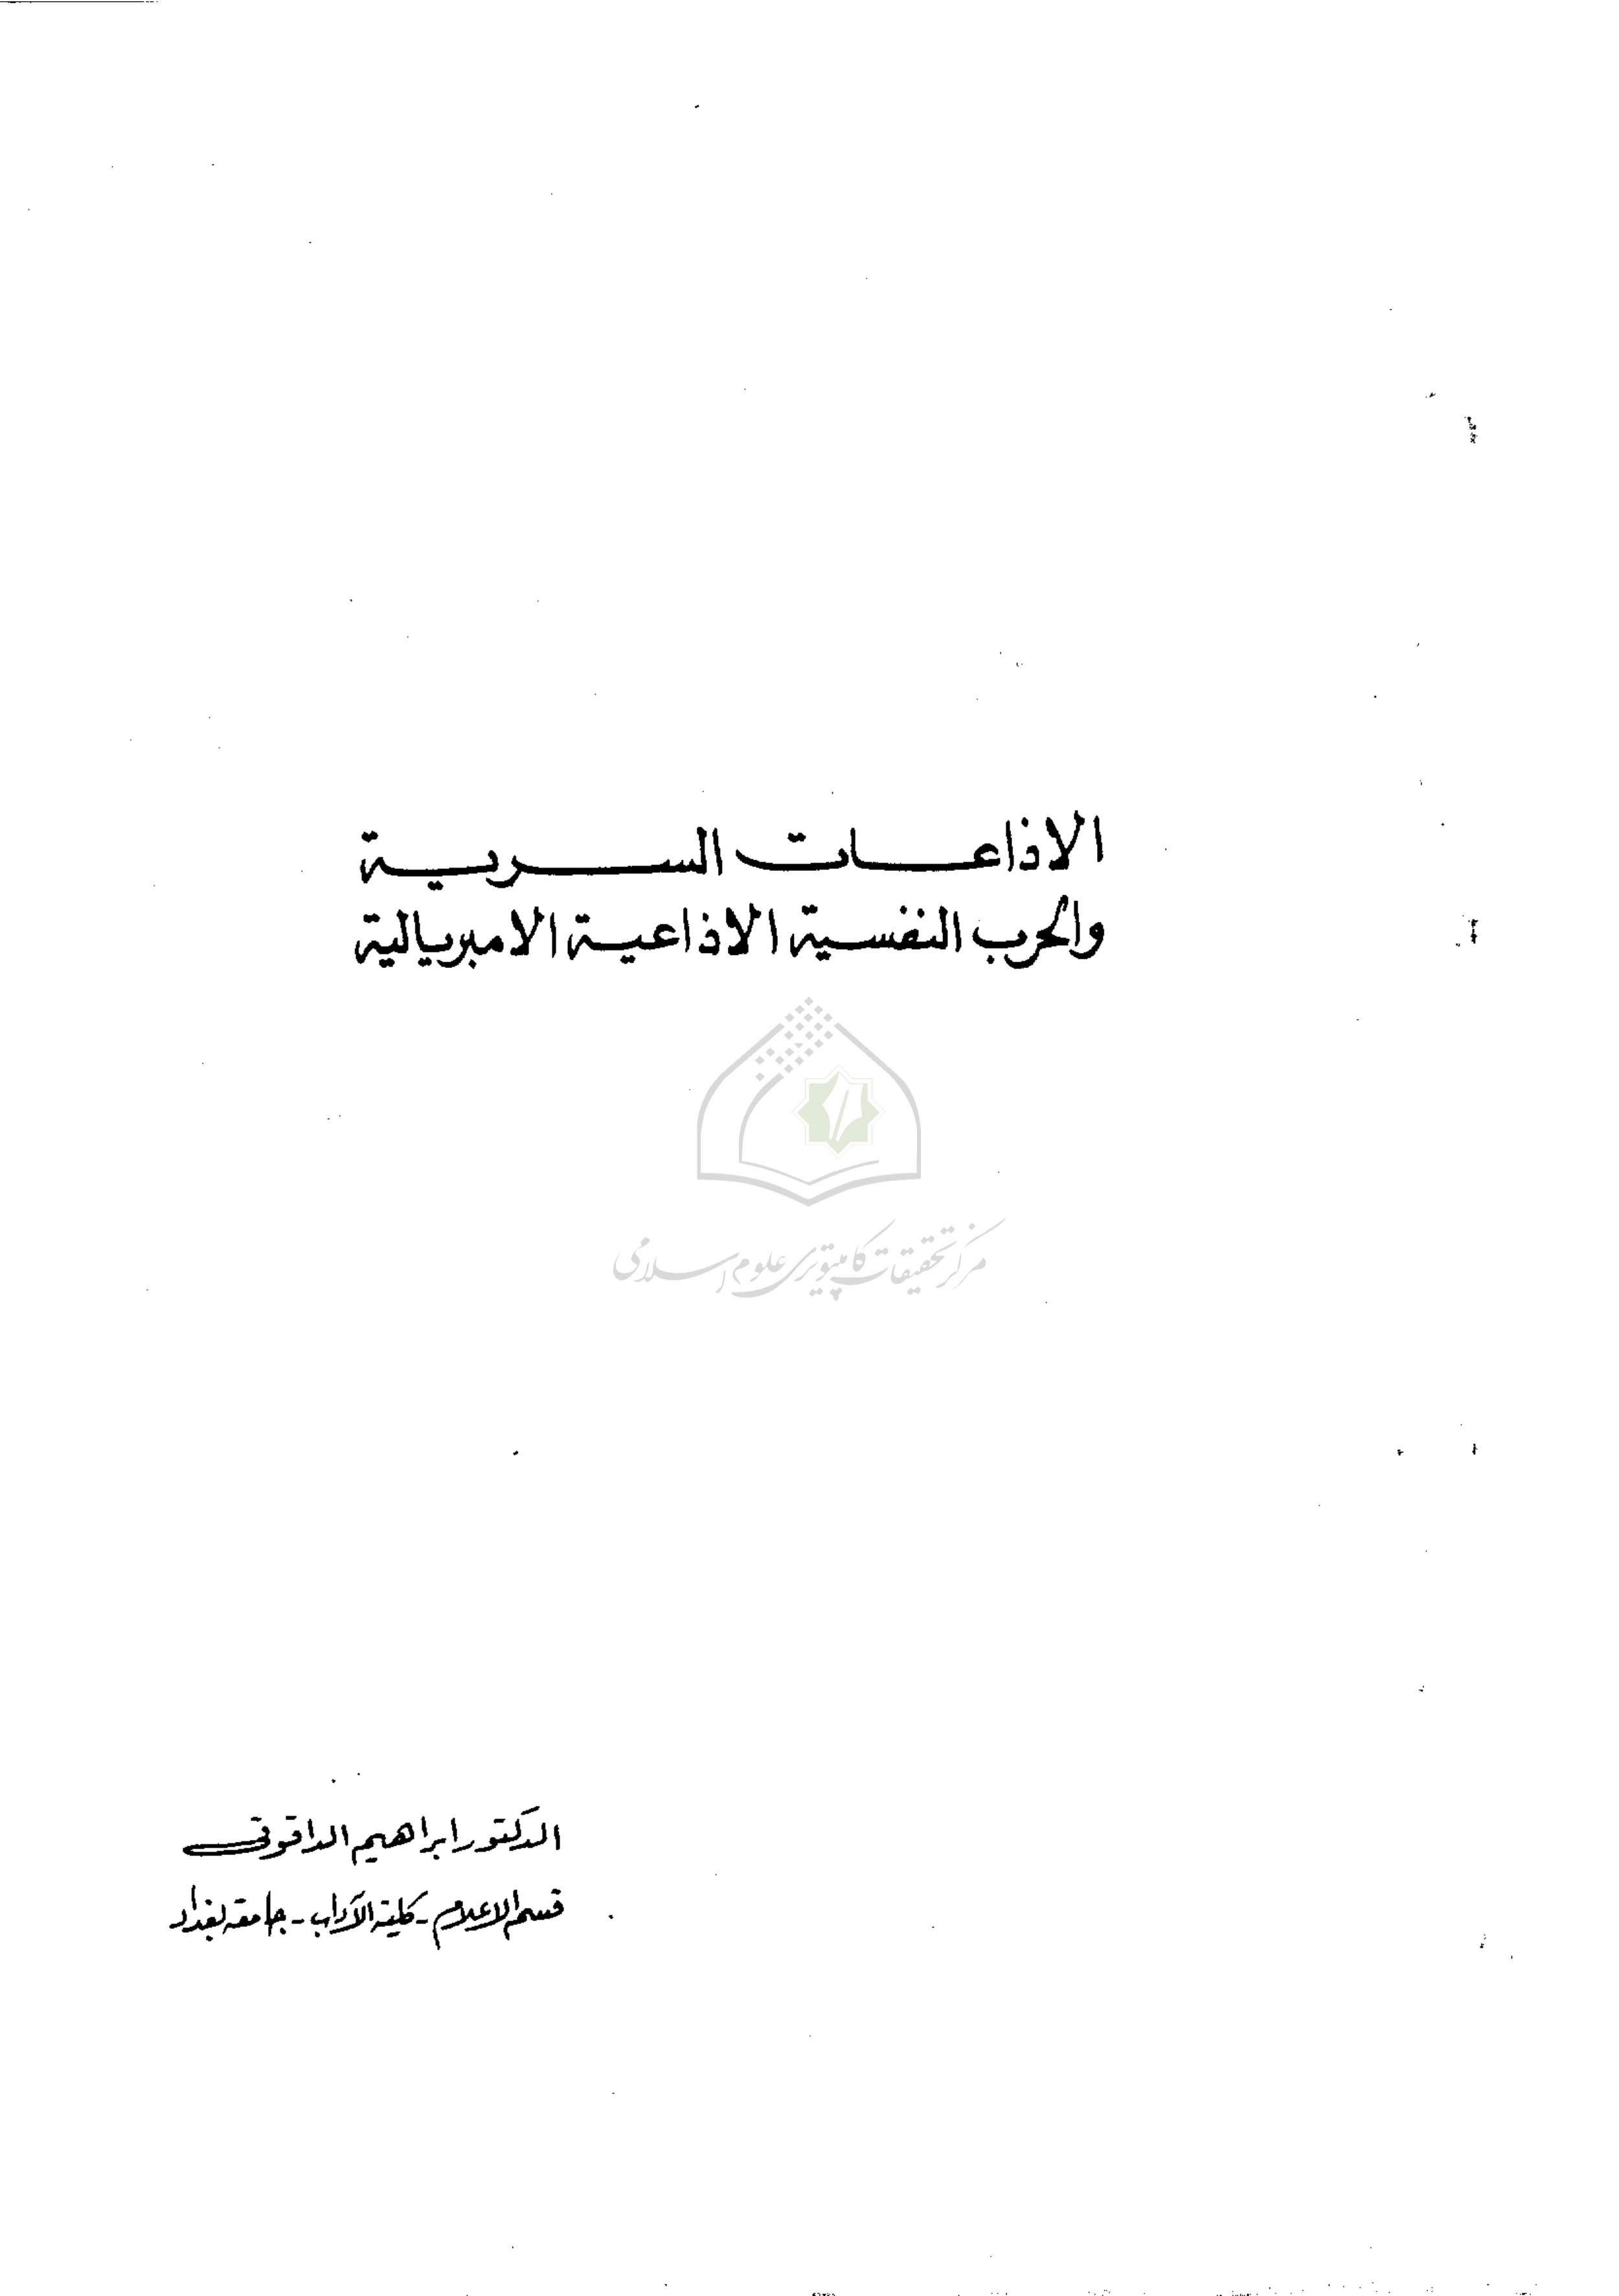 الاذاعات السرية
والحرب النفسية الاذاعية الامبريالية
مركز تحقيقات كامپيوتری علوم اسلامی
الدكتور ابراهيم الداقوقي
قسم الاعلام - كلية الآداب - جامعة بغداد